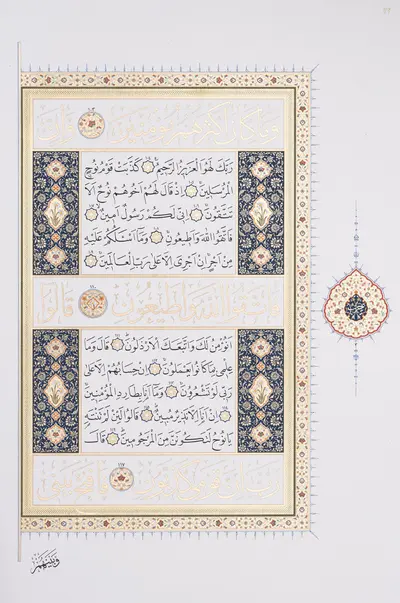 وَمَا كَانَ أَكْثَرُهُمْ مُؤْمِنِينَ ١٠٣ وَإِنَّ
رَبَّكَ لَهُوَ الْعَزِيزُ الرَّحِيمُ كَذَّبَتْ قَوْمُ نُوحٍ
الْمُرْسَلِينَ إِذْ قَالَ لَهُمْ أَخُوهُمْ نُوحٌ أَلَا
تَتَّقُونَ إِنِّي لَكُمْ رَسُولٌ أَمِينٌ
فَاتَّقُوا اللَّهَ وَأَطِيعُونِ وَمَا أَسْـَٔلُكُمْ عَلَيْهِ
مِنْ أَجْرٍ إِنْ أَجْرِيَ إِلَّا عَلَى رَبِّ الْعَالَمِينَ
فَاتَّقُوا اللَّهَ وَأَطِيعُونِ ١١٠ قَالُوا
أَنُؤْمِنُ لَكَ وَاتَّبَعَكَ الْأَرْذَلُونَ قَالَ وَمَا
عِلْمِي بِمَا كَانُوا يَعْمَلُونَ إِنْ حِسَابُهُمْ إِلَّا عَلَى
رَبِّي لَوْ تَشْعُرُونَ وَمَا أَنَا بِطَارِدِ الْمُؤْمِنِينَ
إِنْ أَنَا إِلَّا نَذِيرٌ مُبِينٌ قَالُوا لَئِنْ لَمْ تَنْتَهِ
يَا نُوحُ لَتَكُونَنَّ مِنَ الْمَرْجُومِينَ قَالَ
رَبِّ إِنَّ قَوْمِي كَذَّبُونِ ١١٧ فَافْتَحْ بَيْنِي
وَبَيْنَهُمْ